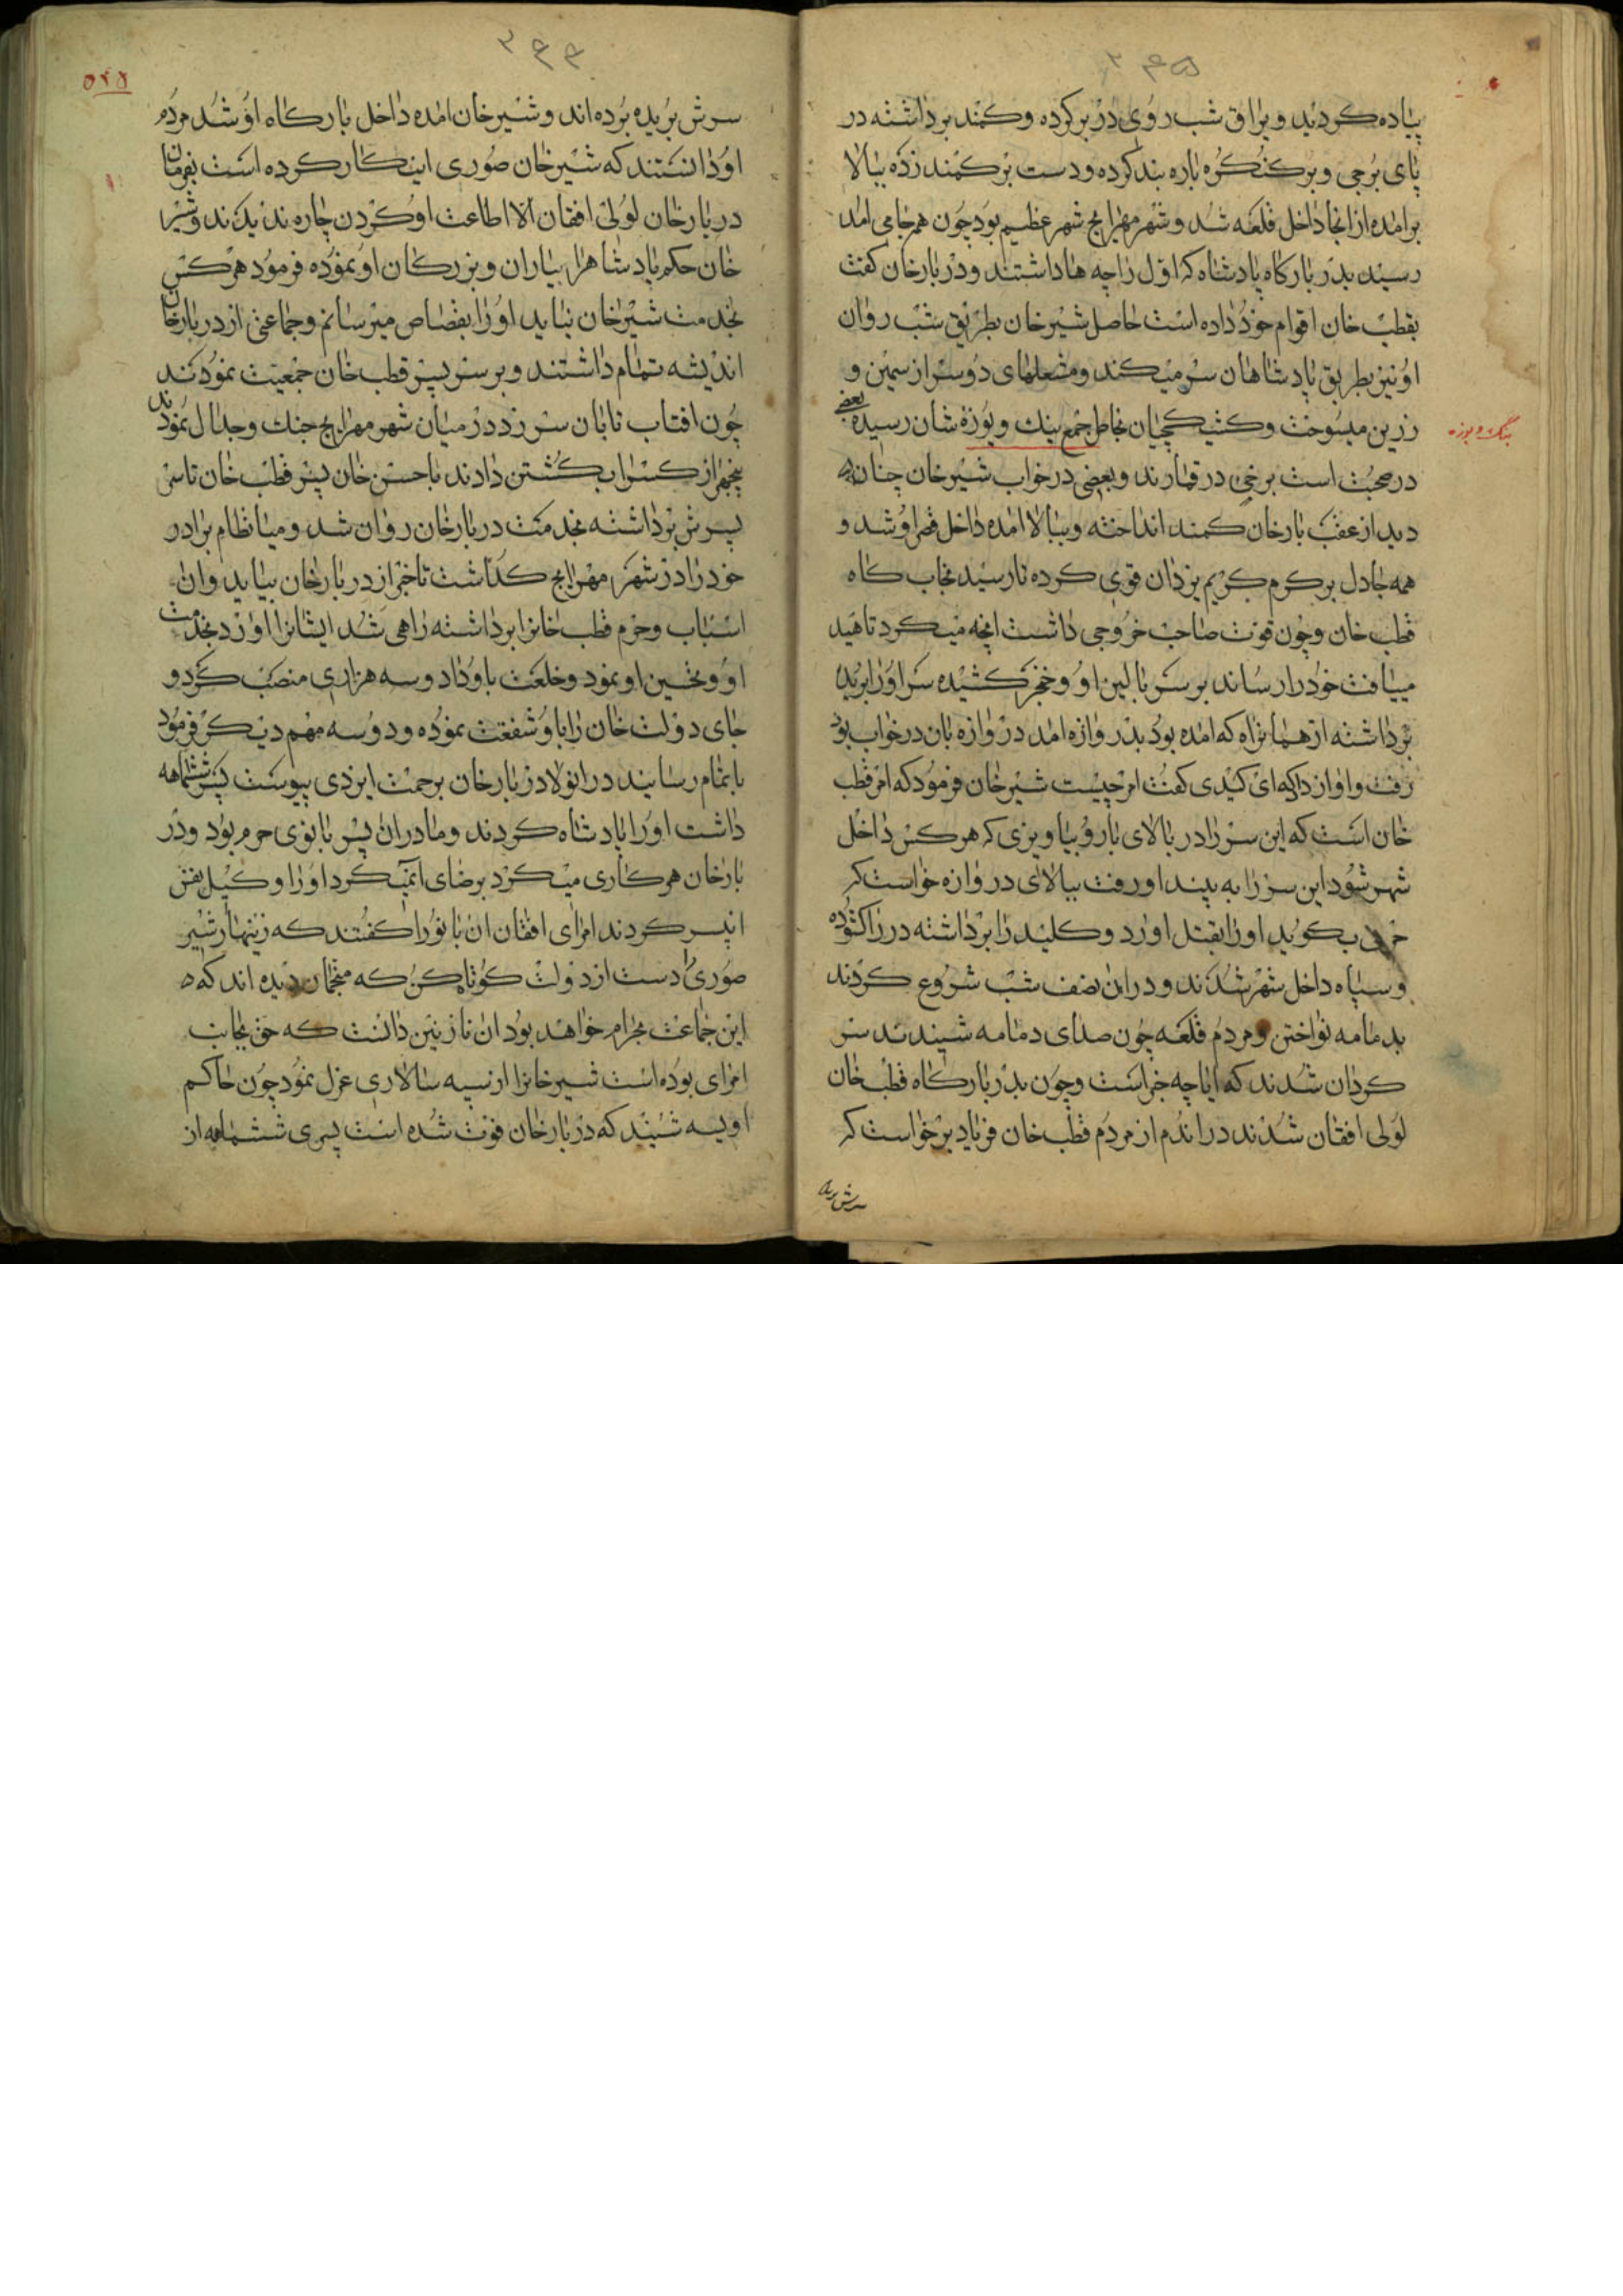 ۳۶۵
پیاده کردید ویراق شب روی در بر کرده وکمند برداشته در
پای برجی وبر کنکره باره بند کرده ودست بر کمند زده ببالا
برامده از انجا داخل قلعه شد وشهر مهرابج شهر عظیم بود چون همرجامی امد
رسید بدر بارکاه پادشاه که اول راجه ها داشتند ودر بارخان کفت
بقطب خان اقوام خود داده است حاصل شیرخان بطریق شب روان
او نیز بطریق پادشاهان سر میکند ومشعلهای دو سر از سیمین و
زرین میسوخت وکشیکچیان بخاطر جمع بنک وبوزه شان رسیده بعضی
بنک وبوزه
در صحبت است برخی در قمارند وبعضی در خواب شیرخان چنان که
دید از عقب بارخان کمند انداخته وببالا امده داخل قصر او شد و
همه جا دل بر کرم کریم یزدان قوی کرده تا رسید بخاب کاه
قطب خان وچون قوت صاحب خروجی داشت انچه میکرد تاهید
مییافت خود را رساند بر سر بالین او وخنجر کشیده سر او را برید
برداشته از همانراه که امده بود بدروازه امد دروازه بان در خواب بود
رفت واواز داکه ای کیدی کفت امر چیست شیرخان فرمود که امر قطب
خان است که این سر را در بالای بارو بیاویزی که هر کس داخل
شهر شود این سر را به بیند او رفت ببالای دروازه خواست که
بکوید او را بقتل اورد وکلید را برداشته در را کشوده
وسپاه داخل شهر شدند ودر این نصف شب شروع کردند
بدمامه نواختن ومردم قلعه چون صدای دمامه شیندند سر
کردان شدند که ایا چه خبر است وچون بدر بارکاه قطب خان
لولی افقان شدند در اندم از مردم قطب خان فریاد برخواست که
سرش بریده
۳۶۶
۵۲۵
سرش بریده برده اند وشیرخان امده داخل بارکاه او شد مردم
او دانستند که شیرخان صوری اینکار کرده است بفرمان
دربارخان لولی افقان الا اطاعت او کردن چاره ندیدند وشیر
خان حکم پادشاهرا بیاران وبزرکان او نموده فرمود هر کس
بخدمت شیرخان نیاید او را بقصاص میرسانم وجماعتی از دربارخان
اندیشه تمام داشتند وبر سر پسر قطب خان جمعیت نمودند
چون افتاب تابان سر زد در میان شهر مهرابج جنک وجدال نمودند
پنجهزار کس را بکشتن دادند با حسن خان پسر قطب خان تا سر
پسرش برداشته بخدمت دربارخان روان شد ومیانظام برادر
خود را در شهر مهرابج کداشت تا خبر از دربارخان بیاید وان
اسباب وحرم قطب خانرا برداشته راهی شد ایشانرا اورد بخدمت
او وتحسین او نمود وخلعت باو داد وسه هزاری منصب کرد و
جای دولت خان را باو شفقت نموده ودو سه مهم دیکر فرمود
باتمام رسانید در انولا دربارخان برحمت ایزدی پیوست پسر ششماهه
داشت او را پادشاه کردند ومادر ان پسر بانوی حرم بود ودر
بارخان هر کاری میکرد برضای انمیکرد او را وکیل نفس
ان پسر کردند امرای افقان ان بانو را کفتند که زینهار شیر
صوری را دست از دولت کوتاه کن که منجمان دیده اند که ه
این جماعت بحرام خواهند بود ان نازنین دانست که حق بجانب
امرای بوده است شیرخانرا از سپه سالاری عزل نمود چون حاکم
اویسه شنید که دربارخان فوت شده است پسری ششماهه از